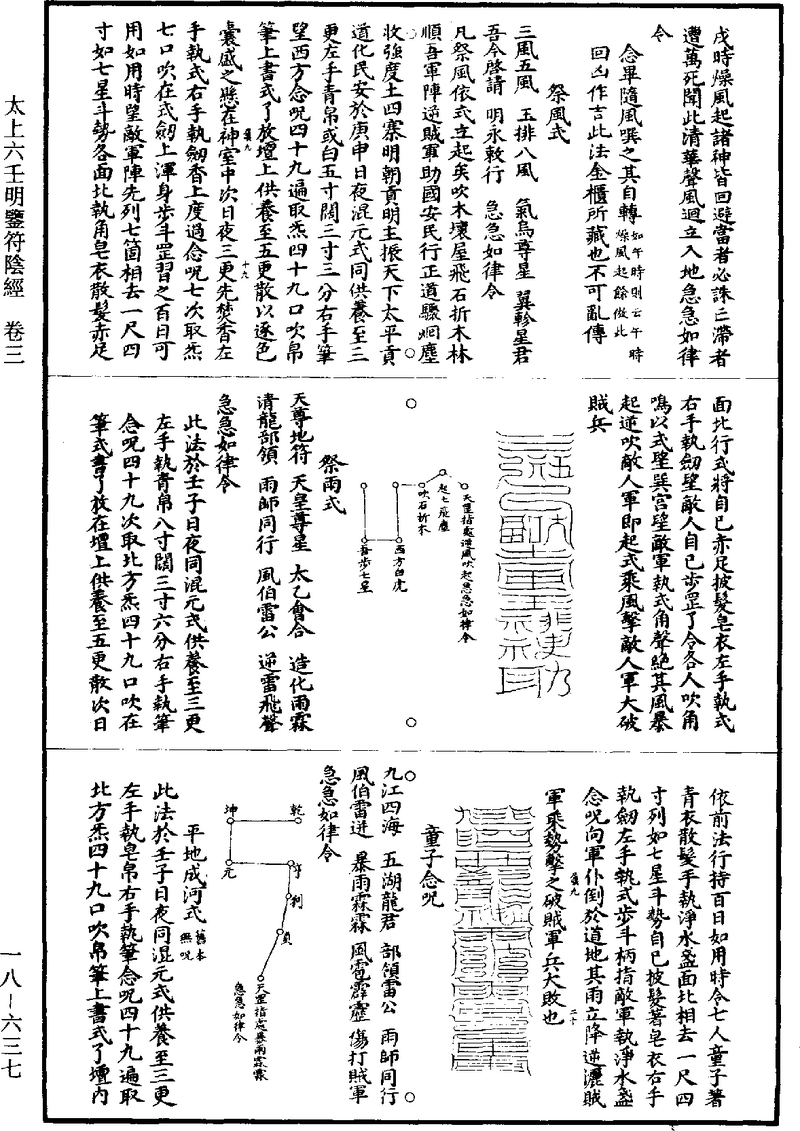 太上六壬明鑒符陰經　卷三
一八—六三七
戌時燥風起諸神皆回避當者必誅亡滯者
遭萬死聞此清華聲風迴立入地急急如律
令
念畢隨風噀之其自轉如午時則云午時燥風起餘倣此
回凶作吉此法金櫃所藏也不可亂傳
祭風式
三風五風　玉排八風　氣烏尊星　翼軫星君
吾今啓請　明永敕行　急急如律令
凡祭風依式立起矣吹木壞屋飛石折木林
順吾軍陣逆賊軍助國安民行正道驟迴塵
收強度土四寨明朝貢明主振天下太平貢
道化民安於庚申日夜混元式同供養至三
更左手青帛或白五寸闊三寸三分右手筆
望西方念呪四十九遍取炁四十九口吹帛
筆上書式了放壇上供養至五更散以逐色
囊盛之懸在神室中次日夜三更先焚香左
手執式右手執劒香上度過念呪七次取炁
七口吹在式劒上渾身步斗罡習之百日可
用如用時望敵軍陣先列七箇相去一尺四
寸如七星斗勢各面北執角皂衣散髮赤足
面北行式將自已赤足披髮皂衣左手執式
右手執劒望敵人自已步罡了令各人吹角
鳴以式望巽宮望敵軍執式角聲絕其風暴
起逆吹敵人軍即起式乘風擊敵人軍大破
賊兵
天罡指處逆風吹起急急如律令
起七飛塵
吹石折木
西方白虎
吾步七星
祭雨式
天尊地符　天皇尊星　太乙會合　造化雨霖
清龍部領　雨師同行　風伯雷公　逆雷飛聲
急急如律令
此法於壬子日夜同混元式供養至三更
左手執青帛八寸闊三寸六分右手執筆
念呪四十九次取北方炁四十九口吹在
筆式書了放在壇上供養至五更散次日
依前法行持百日如用時令七人童子著
青衣散髮手執淨水盞面北相去一尺四
寸列如七星斗勢自已披髮著皂衣右手
執劒左手執式步斗柄指敵軍執淨水盞
念呪向軍仆倒於道地其雨立降逆灑賊
軍乘勢擊之破賊軍兵大敗也
童子念呪
九江四海　五湖龍君　部領雷公　雨師同行
風伯雷迸　暴雨霖霖　風雹霹靂　傷打賊軍
急急如律令
乾
坤
元
亨
利
貞
天罡指處暴雨霖霖
急急如律令
平地成河式舊本無呪
此法於壬子日夜同混元式供養至三更
左手執皂帛右手執筆念呪四十九遍取
北方炁四十九口吹帛筆上書式了壇內